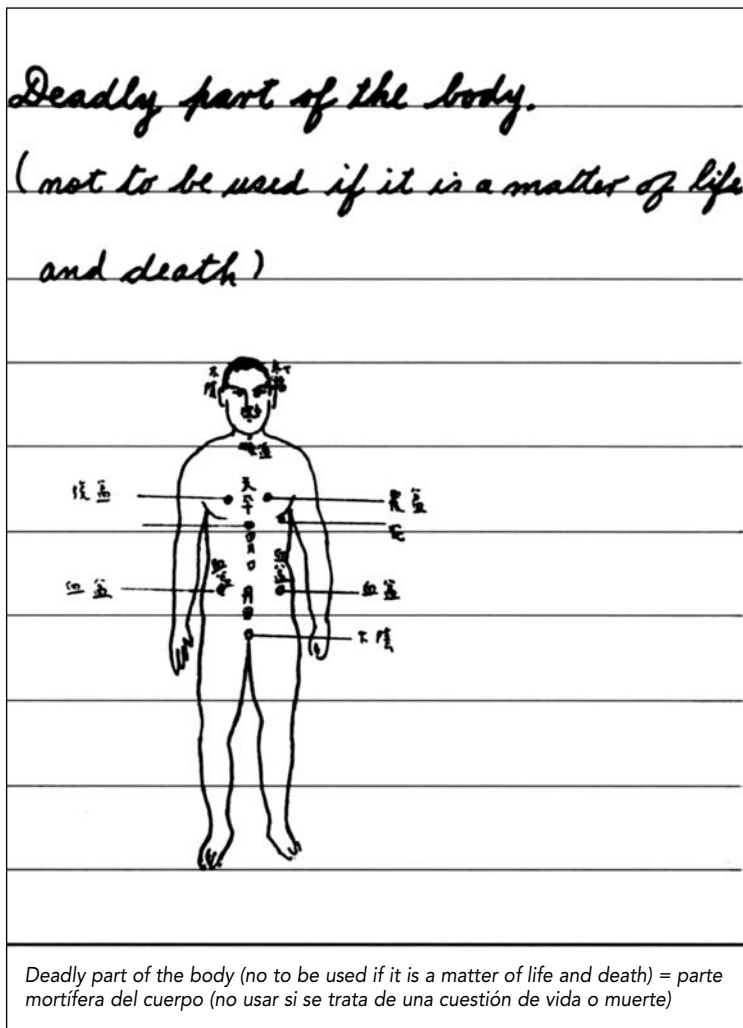 Deadly part of the body.
(not to be used if it is a matter of life
and death)
血
天
血
月
血
下陰
Deadly part of the body (no to be used if it is a matter of life and death) = parte
mortífera del cuerpo (no usar si se trata de una cuestión de vida o muerte)